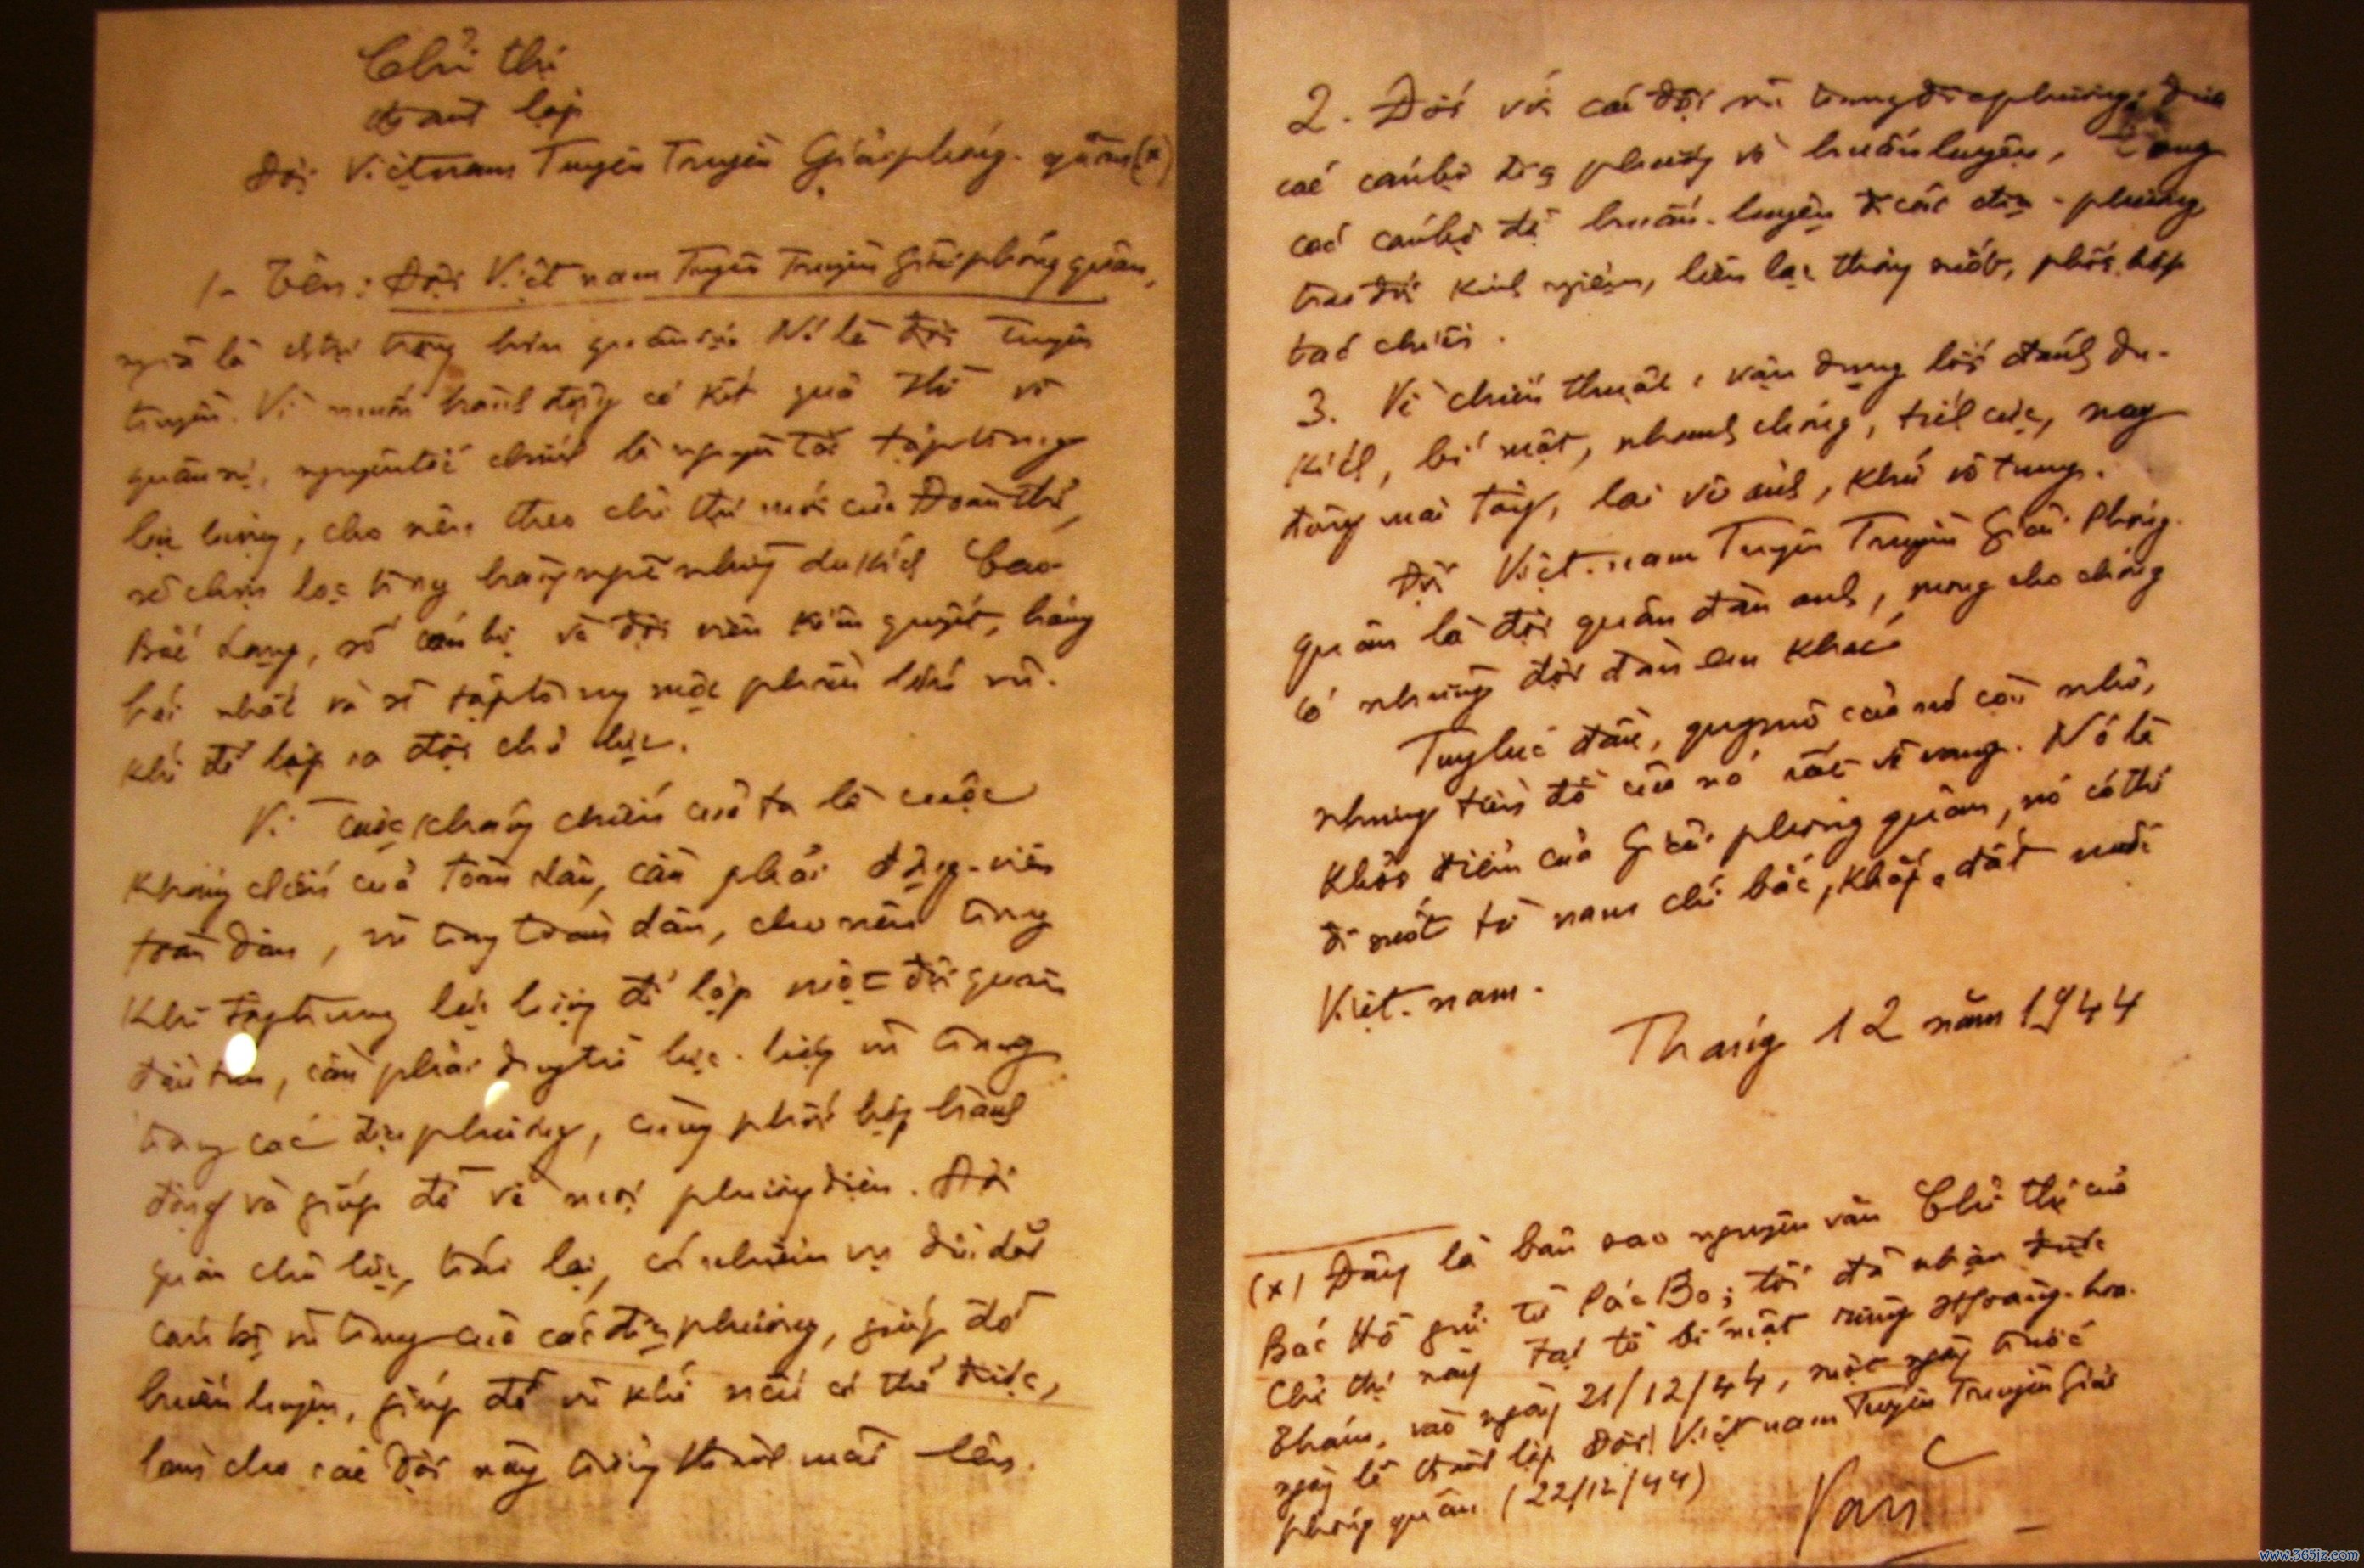 Chỉ thị
thành lập
Đội Việtnam Tuyên Truyền Giảiphóng-quân (x)
1- Tên: Đội Việtnam Tuyên Truyền Giảiphóng quân,
nghĩa là chính trị trọng hơn quânsự. Nó là đội Tuyên
truyền. Vì muốn hành động có kết quả thì về
quân sự, nguyêntắc chính là nguyên tắc tậptrung
lực lượng, cho nên, theo chỉ thị mới của Đoànthể,
sẽ chọn lọc trong hàngngũ những dukích Cao-
Bắc Lạng, số cánbộ và đội viên kiên quyết, hăng
hái nhất và sẽ tậptrung một phần lớn vũ-
khí để lập ra đội chủ lực.
Vì cuộc kháng chiến của ta là cuộc
kháng chiến của toàn dân, cần phải động-viên
toàn dân, vũ trang toàn dân, cho nên trong
khi tậptrung lực lượng để lập một đội quân
đầu tiên, cần phải duytrì lực-lượng vũ trang
trong các địaphương, cùng phối hợp hành
động và giúp đỡ về mọi phươngdiện. Đội
quân chủ lực, trái lại, có nhiệm vụ dìu dắt
cán bộ vũ trang của các địa phương, giúp đỡ
huấn luyện, giúp đỡ vũ khí nếu có thể được,
làm cho các đội này trưởng thành mãi lên.
2. Đối với các đội vũ trang địaphương: đưa
các cánbộ địa phương về huấnluyện, tung
các cánbộ đã huấn-luyện đi các địa-phương,
trao đổi kinh nghiệm, liên lạc thông suốt, phối hợp
tác chiến.
3. Về chiến thuật: vận dụng lối đánh du-
kích, bí mật, nhanh chóng, tích cực, nay
đông mai tây, lai vô ảnh, khứ vô tung.
Đội Việt-nam Tuyên Truyền Giải Phóng-
quân là đội quân đàn anh, mong cho chóng
có những đội đàn em khác
Tuy lúc đầu, quymô của nó còn nhỏ,
nhưng tiền đồ của nó rất vẻ vang. Nó là
khởi điểm của Giải phóng quân, nó có thể
đi suốt từ nam chí bắc, khắp đất nước
Việt-nam.
Tháng 12 năm 1944
(x) Đây là bản sao nguyên văn Chỉ thị của
Bác Hồ gửi từ Pác Bó; tôi đã nhận được
Chỉ thị này tại tổ bí mật rừng Hoàng-hoa-
thám, vào ngày 21/12/44, một ngày trước
ngày lễ thành lập Đội Việtnam Tuyên Truyền Giải
phóng quân (22/12/44)
Văn
www.365jz.com